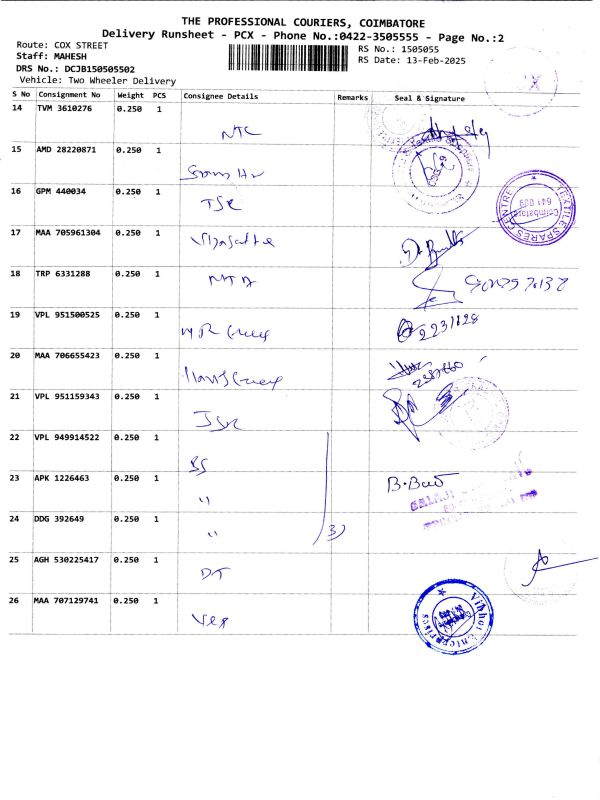 THE PROFESSIONAL COURIERS, COIMBATORE
Delivery Runsheet - PCX - Phone No.:0422-3505555 - Page No.:2
Route: COX STREET
Staff: MAHESH
DRS No.: DCJB150505502
Vehicle: Two Wheeler Delivery
RS No.: 1505055
RS Date: 13-Feb-2025
S No Consignment No Weight PCS Consignee Details Remarks Seal & Signature
14 TVM 3610276 0.250 1 NTC
15 AMD 28220871 0.250 1
16 GPM 440034 0.250 1 TSC
TEXTILE SPARES CENTRE
Coimbatore
17 MAA 705961304 0.250 1
18 TRP 6331288 0.250 1 MTA
19 VPL 951500525 0.250 1 2231828
20 MAA 706655423 0.250 1
21 VPL 951159343 0.250 1
22 VPL 949914522 0.250 1 BS
23 APK 1226463 0.250 1 "
24 DDG 392649 0.250 1 " 3)
25 AGH 530225417 0.250 1 DT
26 MAA 707129741 0.250 1
Vibhor Enterprises